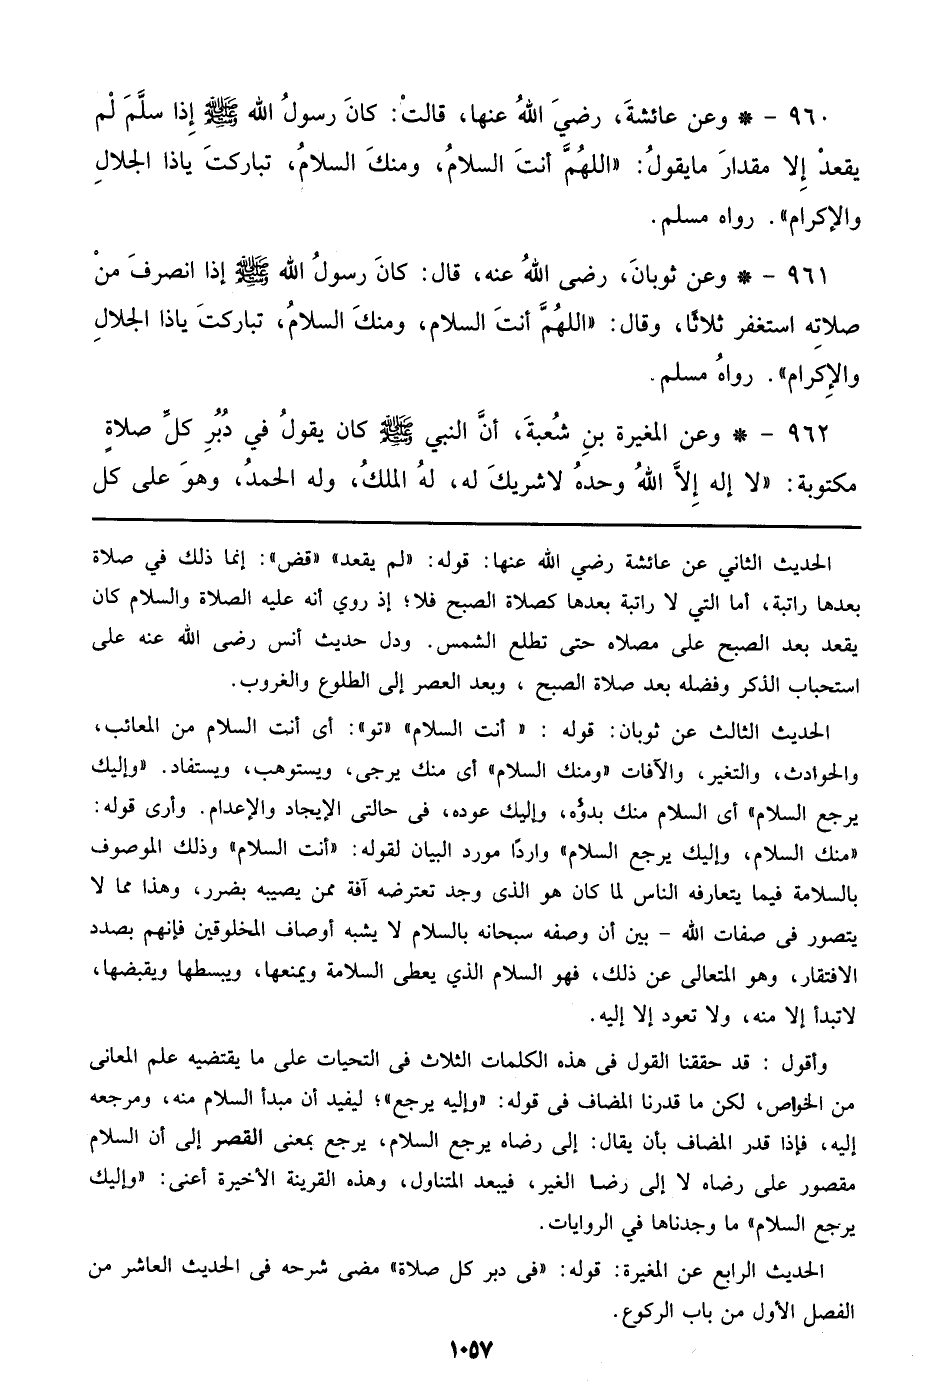 ٩٦٠ - * وعن عائشةَ، رضيَ اللهُ عنها، قالتْ: كانَ رسولُ الله ﷺ إِذا سلَّمَ لْم
يقعدْ إِلا مقدارَ مايقولُ: «اللهُمَّ أنتَ السلامُ، ومنكَ السلامُ، تباركتَ ياذا الجلالِ
والإكرام». رواه مسلم.
٩٦١ - * وعن ثوبانَ، رضى اللهُ عنه، قال: كانَ رسولُ الله ﷺ إذا انصرفَ منْ
صلاتِه استغفر ثلاثًا، وقال: «اللهُمَّ أنتَ السلام، ومنكَ السلامُ، تباركتَ ياذا الجلالِ
والإِكرام». رواهُ مسلم.
٩٦٢ - * وعن المغيرة بنِ شُعبةَ، أنَّ النبي ﷺ كان يقولُ في دُبُرِ كلِّ صلاةٍ
مكتوبة: «لا إله إِلاَّ اللهُ وحدهُ لاشريكَ له، لهُ الملكُ، وله الحمدُ، وهوَ على كل
الحديث الثاني عن عائشة رضي الله عنها: قوله: «لم يقعد» «قض»: إنما ذلك في صلاة
بعدها راتبة، أما التي لا راتبة بعدها كصلاة الصبح فلا؛ إذ روي أنه عليه الصلاة والسلام كان
يقعد بعد الصبح على مصلاه حتى تطلع الشمس. ودل حديث أنس رضى الله عنه على
استحباب الذكر وفضله بعد صلاة الصبح ، وبعد العصر إلى الطلوع والغروب.
الحديث الثالث عن ثوبان: قوله : « أنت السلام» «تو»: أى أنت السلام من المعائب،
والحوادث، والتغير، والآفات «ومنك السلام» أى منك يرجى، ويستوهب، ويستفاد. «وإليك
يرجع السلام» أى السلام منك بدؤه، وإليك عوده، فى حالتى الإيجاد والإعدام. وأرى قوله:
«منك السلام، وإليك يرجع السلام» واردًا مورد البيان لقوله: «أنت السلام» وذلك الموصوف
بالسلامة فيما يتعارفه الناس لما كان هو الذى وجد تعترضه آفة ممن يصيبه بضرر، وهذا مما لا
يتصور فى صفات الله - بين أن وصفه سبحانه بالسلام لا يشبه أوصاف المخلوقين فإنهم بصدد
الافتقار، وهو المتعالى عن ذلك، فهو السلام الذي يعطى السلامة ويمنعها، ويبسطها ويقبضها،
لاتبدأ إلا منه، ولا تعود إلا إليه.
وأقول : قد حققنا القول فى هذه الكلمات الثلاث فى التحيات على ما يقتضيه علم المعانى
من الخواص، لكن ما قدرنا المضاف فى قوله: «وإليه يرجع»؛ ليفيد أن مبدأ السلام منه، ومرجعه
إليه، فإذا قدر المضاف بأن يقال: إلى رضاه يرجع السلام، يرجع بمعنى القصر إلى أن السلام
مقصور على رضاه لا إلى رضا الغير، فيبعد المتناول، وهذه القرينة الأخيرة أعنى: «وإليك
يرجع السلام» ما وجدناها في الروايات.
الحديث الرابع عن المغيرة: قوله: «فى دبر كل صلاة» مضى شرحه فى الحديث العاشر من
الفصل الأول من باب الركوع.
١٠٥٧